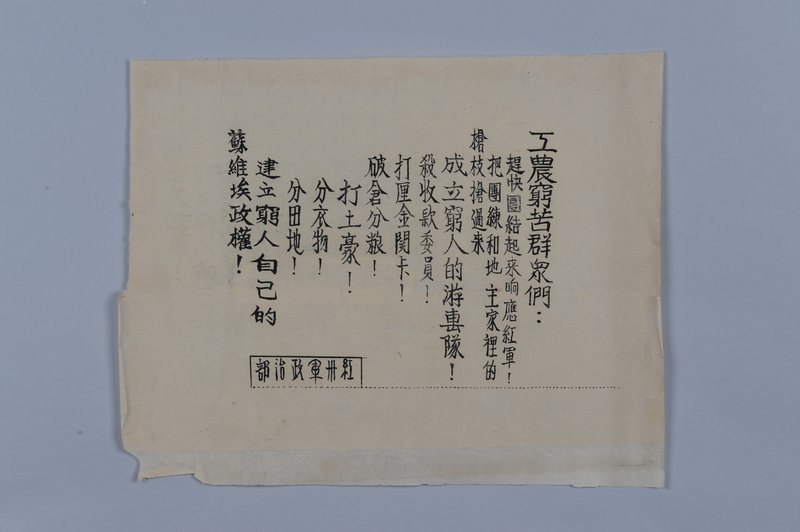 工農窮苦群眾們：
趕快團結起来响應紅軍！
把團練和地主家裡的
槍枝搶過来
成立窮人的游畫隊！
殺收款委員！
打厘金関卡！
破倉分粮！
打土豪！
分衣物！
分田地！
建立窮人自己的
蘇維埃政權！
紅卅軍政治部